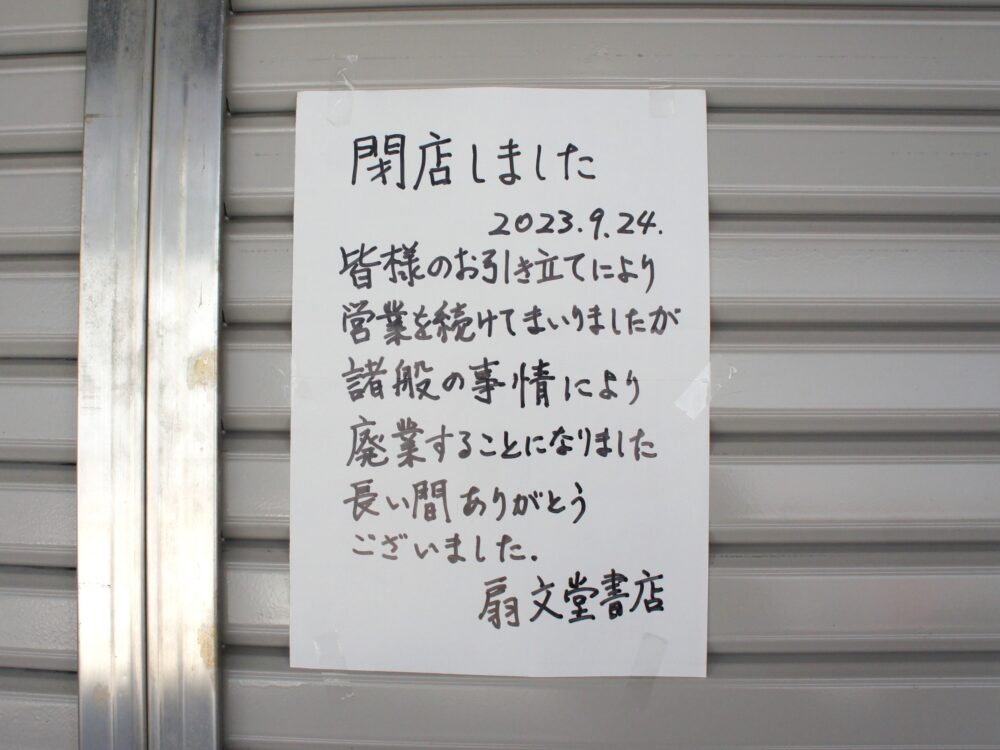 閉店しました
2023.9.24.
皆様のお引き立てにより
営業を続けてまいりましたが
諸般の事情により
廃業することになりました
長い間ありがとう
ございました.
扇文堂書店